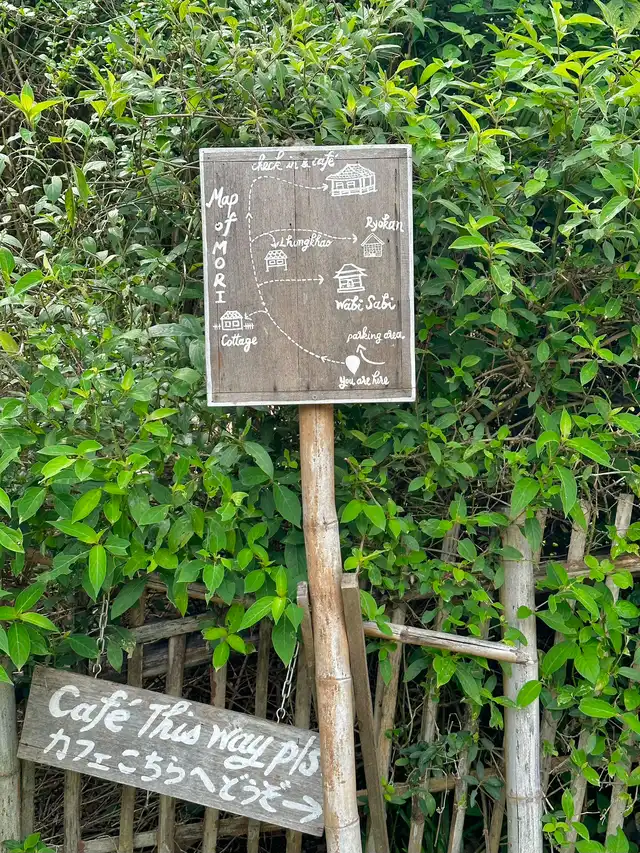 check in & café
Map of MORI
Ryokan
Lhungkhao
Wabi Sabi
Cottage
parking area
you are here
Café This way pls
カフェこちらへどうぞ→